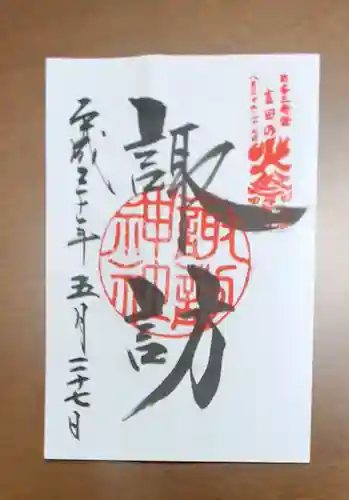 日本三奇祭
吉田の
火祭
諏訪
諏訪神社
平成三十年五月二十七日